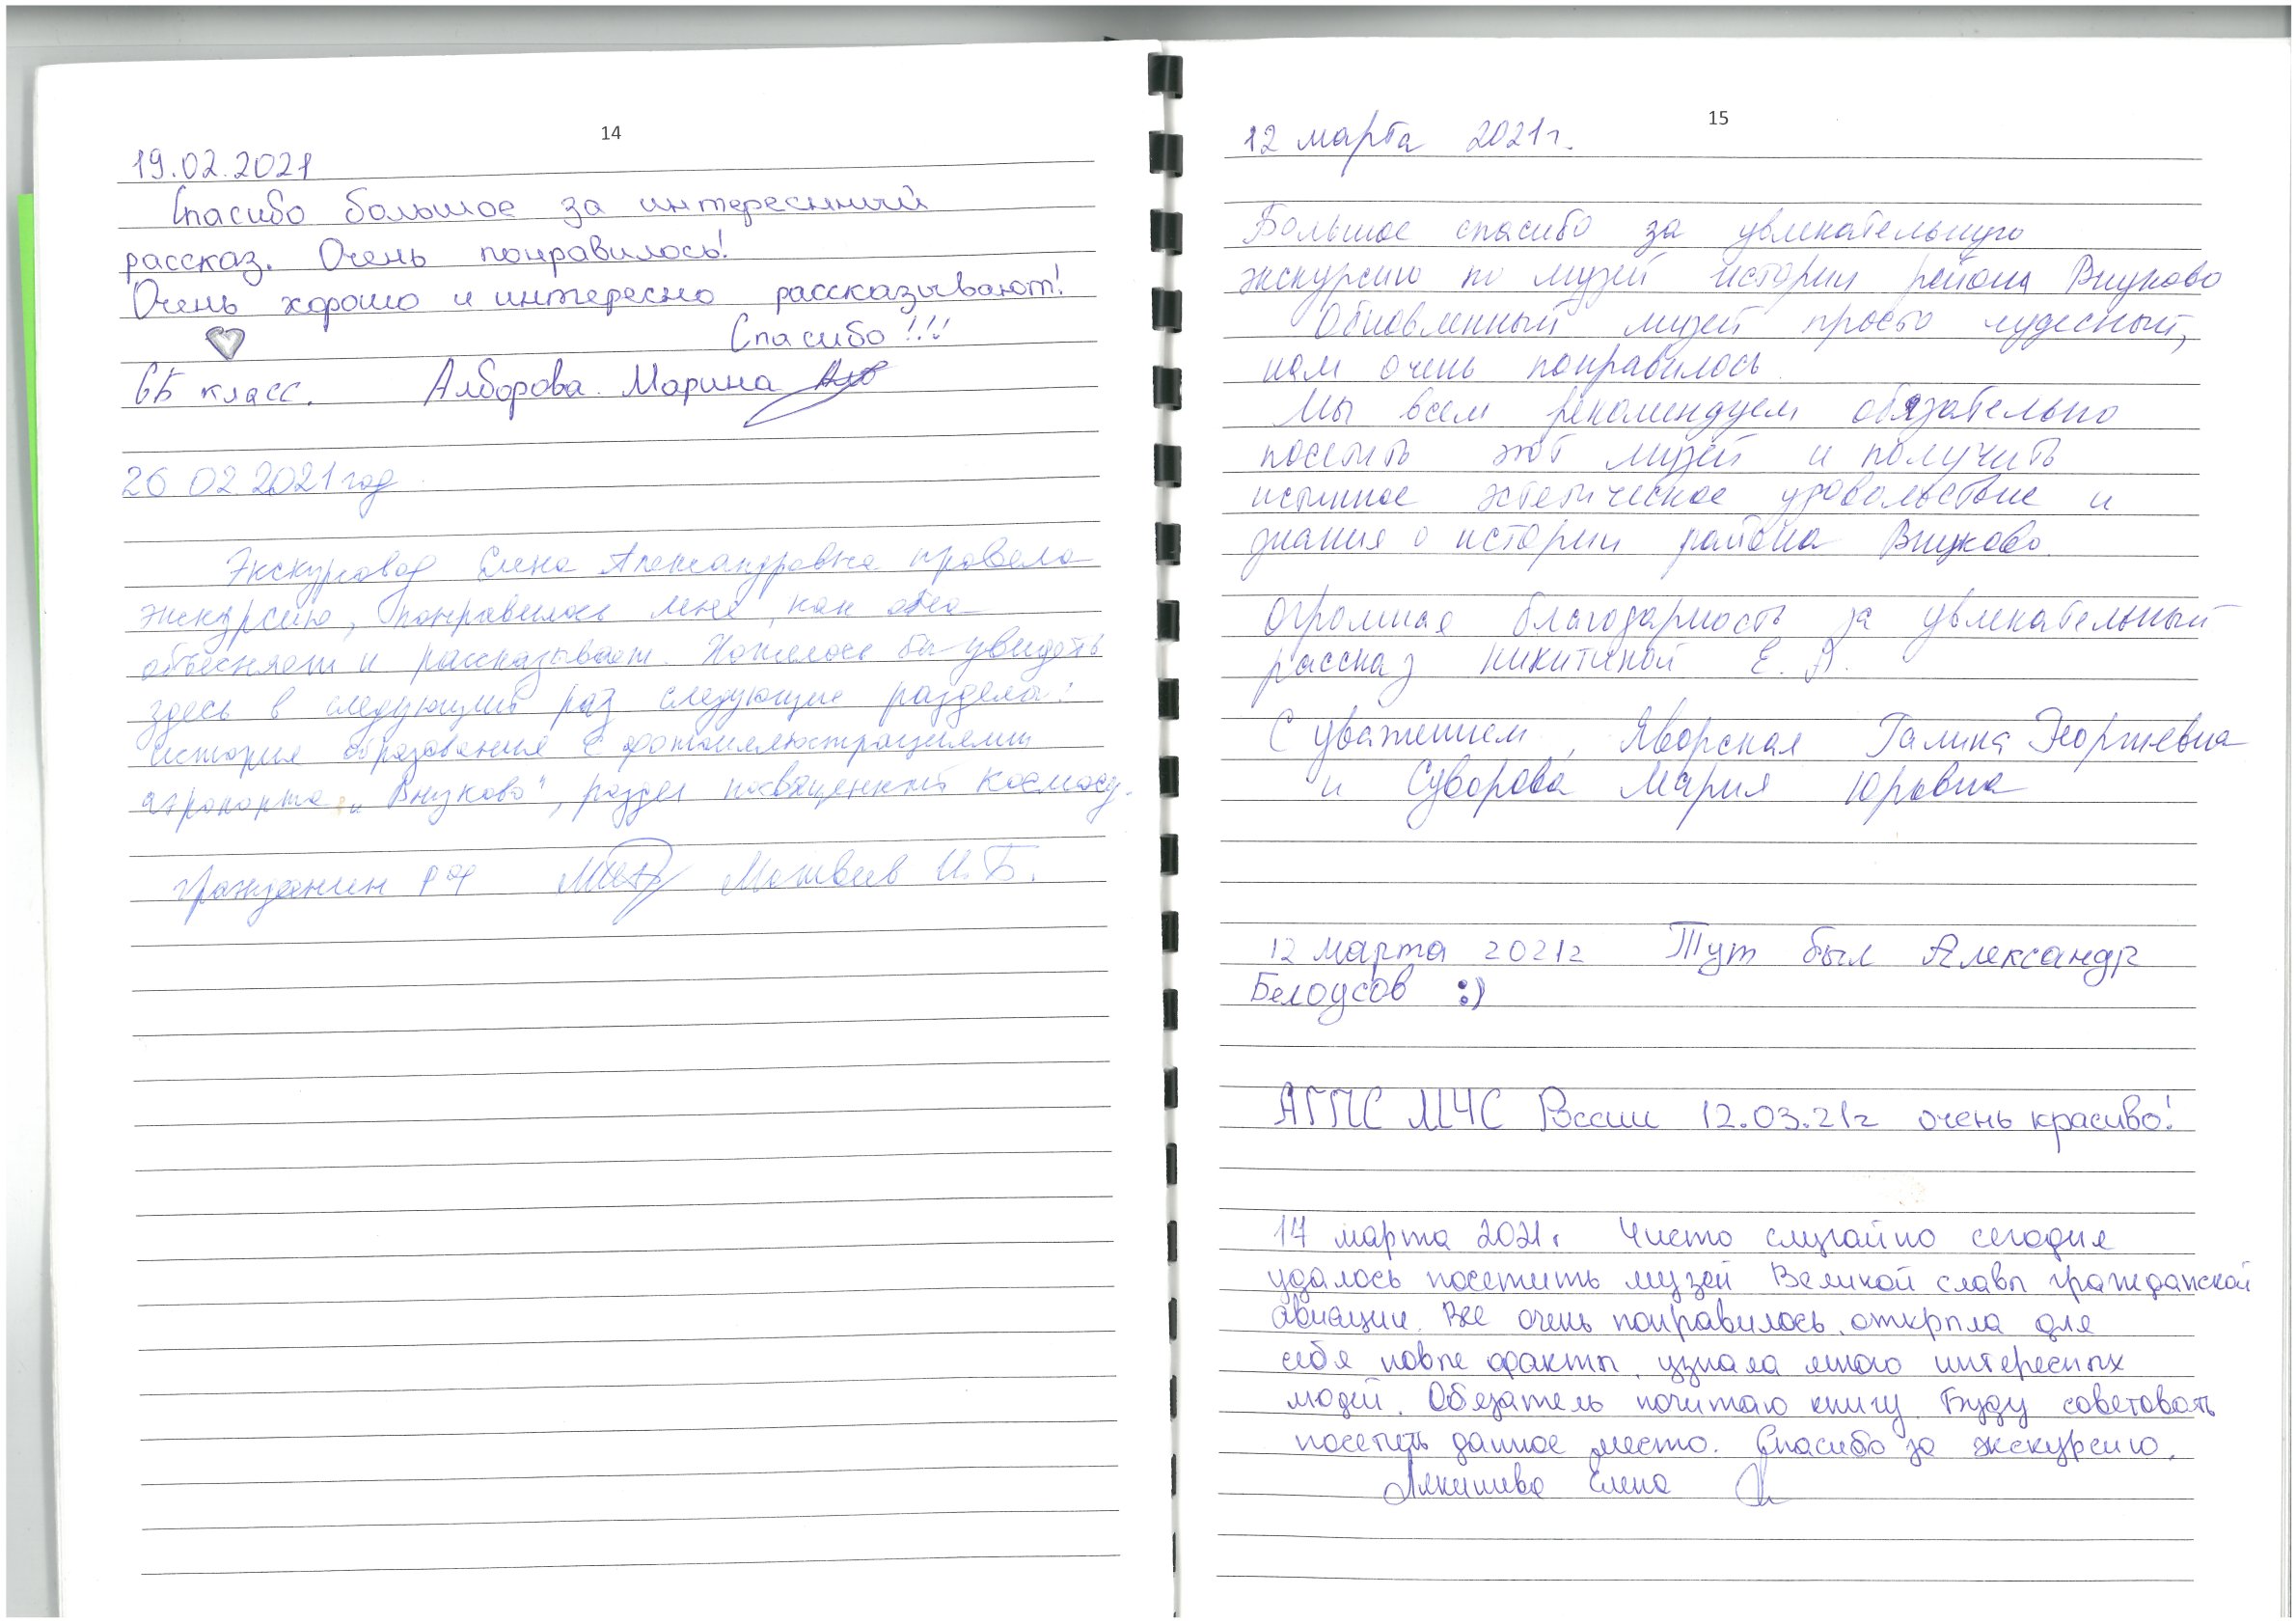 14
19.02.2021
Спасибо большое за интереснный
рассказ. Очень понравилось!
Очень хорошо и интересно рассказывают!
Спасибо!!!
6Б класс. Алборова Марина
26 02 2021 год
Экскурсовод Елена Александровна провела
экскурсию, понравилось мне, как она
объясняет и рассказывает. Хотелось бы увидеть
здесь в следующий раз следующие разделы:
история образования с фотоиллюстрациями
аэропорта „Внуково", раздел посвященный космосу.
гражданин РФ Матвеев И.Б.
15
12 марта 2021г.
Большое спасибо за увлекательную
экскурсию по музей истории района Внуково
Обновленный музей просто чудесный,
нам очень понравилось.
Мы всем рекомендуем обязательно
посетить этот музей и получить
истинное эстетическое удовольствие и
знания о истории района Внуково.
Огромная благодарность за увлекательный
рассказ Никитиной Е. А.
С уважением, Яворская Галина Георгиевна
и Суворова Мария Юрьевна
12 марта 2021г Тут был Александр
Белоусов :)
АГПС МЧС России 12.03.21г очень красиво!
17 марта 2021г Чисто случайно сегодня
удалось посетить музей Великой славы гражданской
авиации. Все очень понравилось, открыла для
себя новые факты, узнала много интересных
людей. Обязатель почитаю книгу. Буду советовать
посетить данное место. Спасибо за экскурсию.
Елена